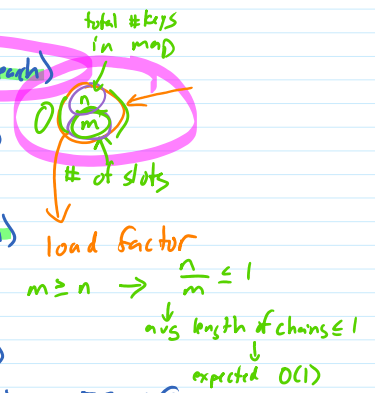 total # keys
in map
each)
O(n/m)
# of slots
load factor
m ≥ n → n/m ≤ 1
avg length of chains ≤ 1
expected O(1)